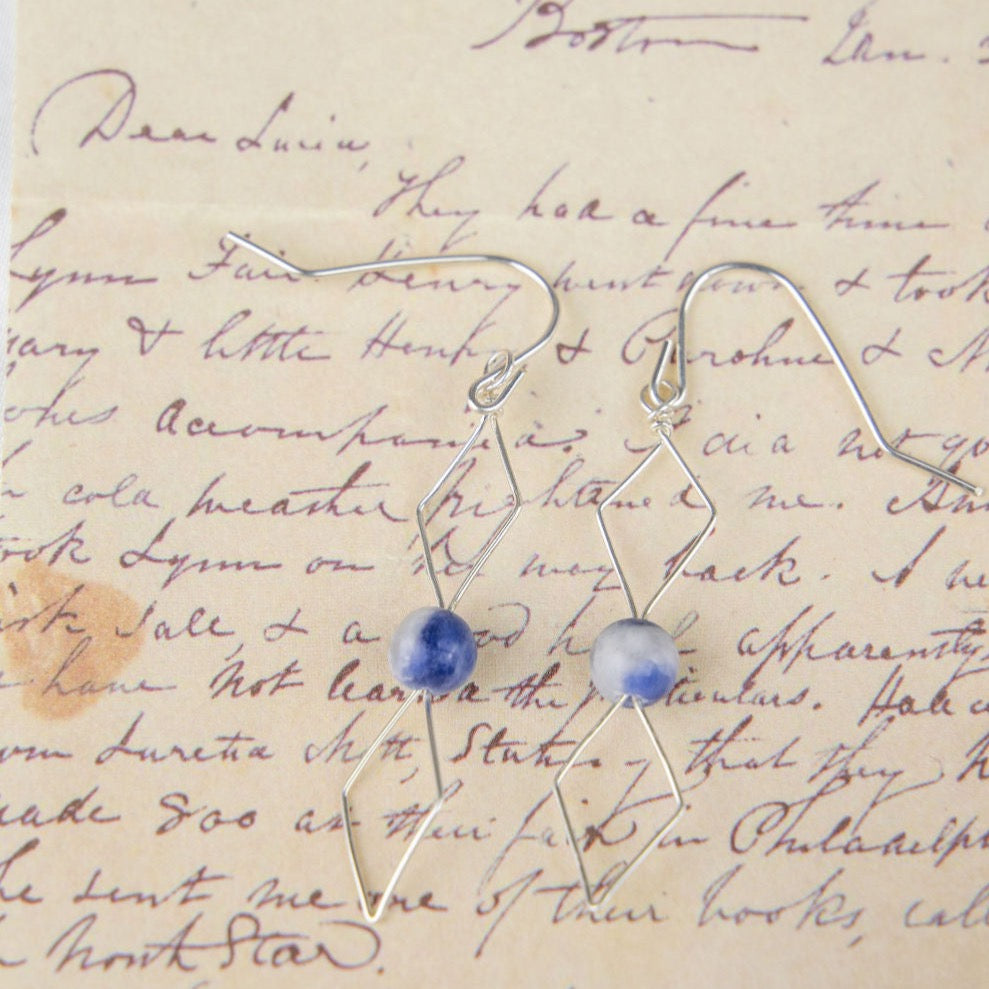 Boston Jan.
Dear Lucia,
They had a fine time
Lynn Fair. Henry went down & took
Mary & little Henry & Caroline & M
accompanied. I did not go
cold weather frightened me.
took Lynn on his way back. I
sale, & a good haul apparently
have not learned the particulars. Had a
Lucretia Mott, stating that they
made 800 at their fair in Philadelph
She sent me one of their books, call
North Star.